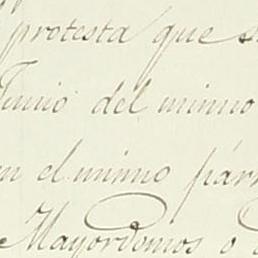 protesta que s
Junio del mismo
en el mismo párr
Mayordomos o